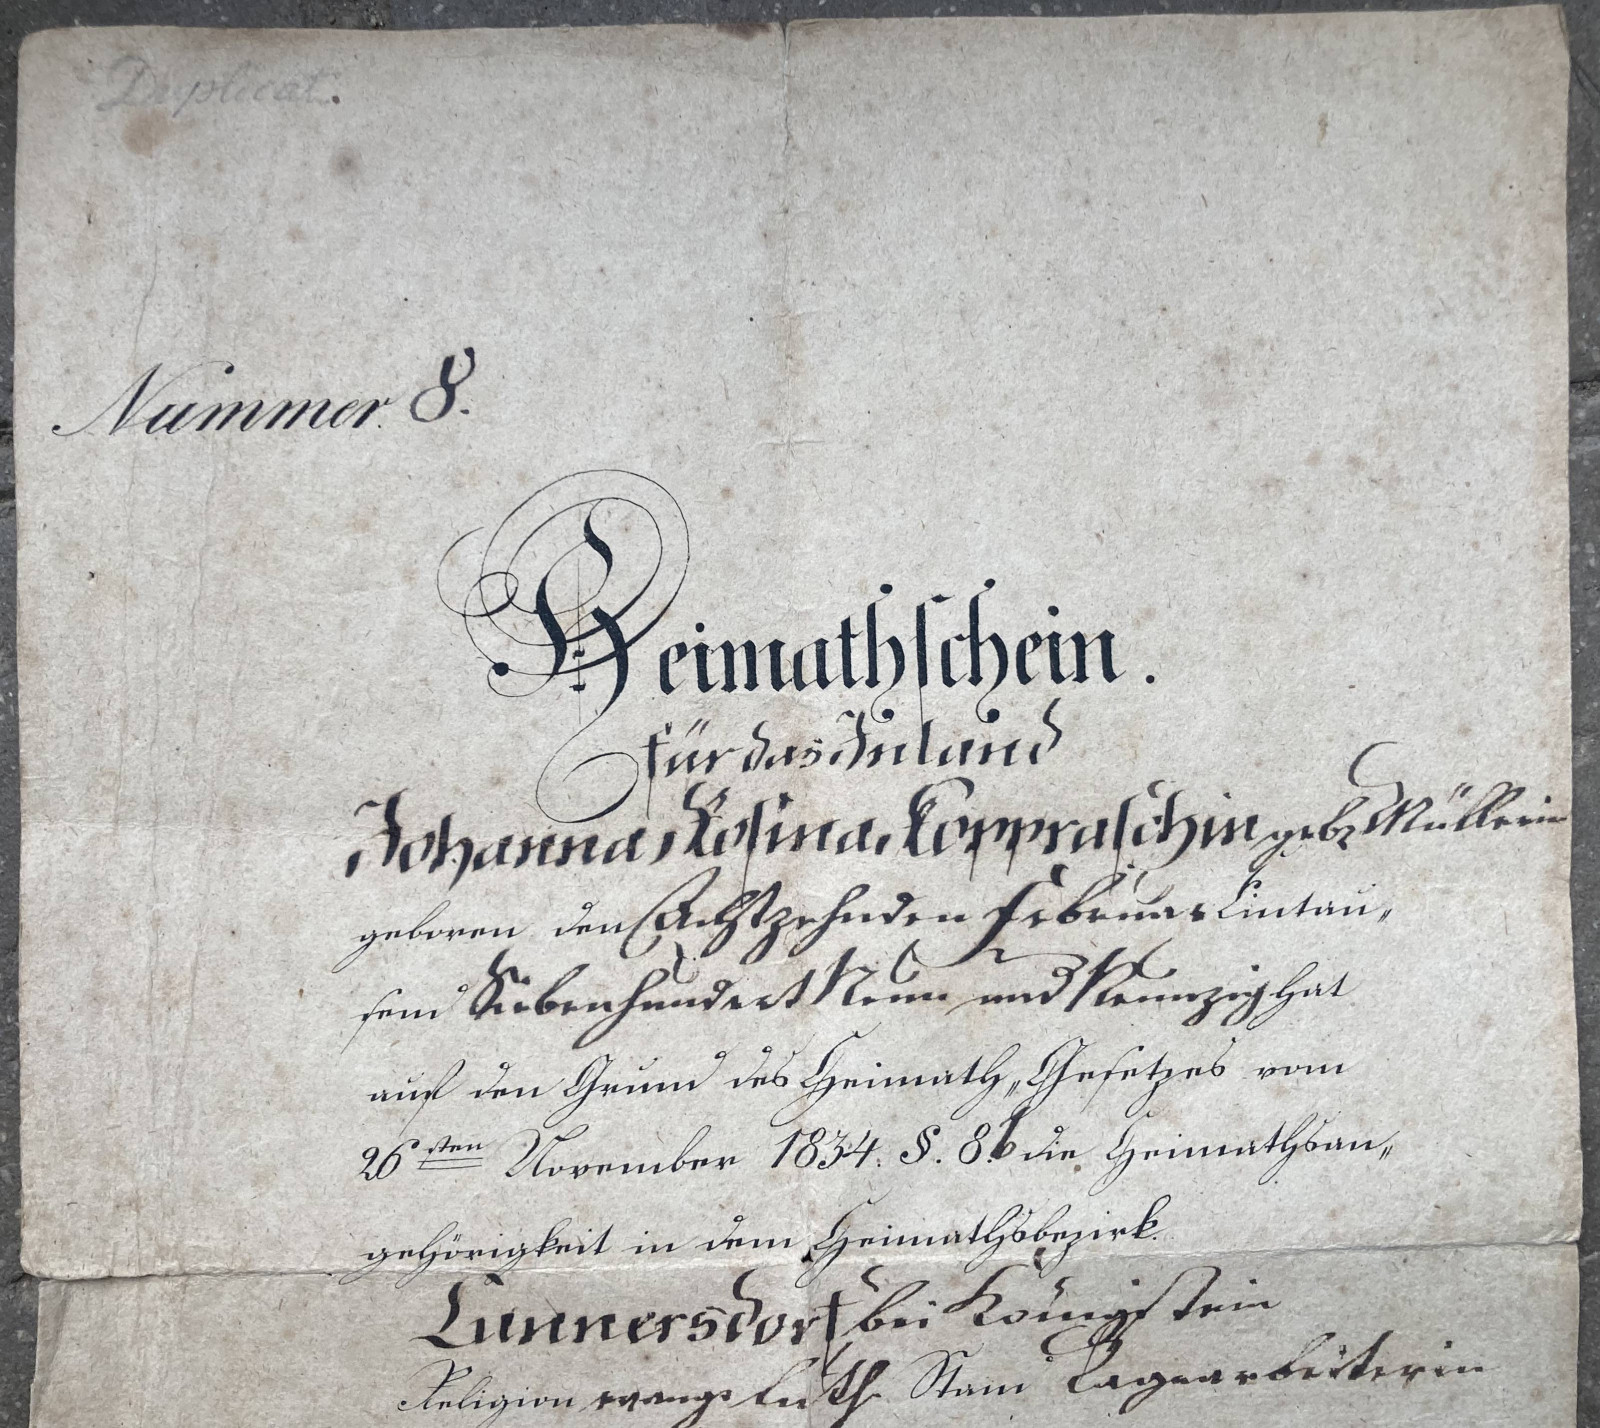 Duplicat.
Nummer. 8.
Heimathschein.
für das Inland
Johanna, Rosina, Koppraschin geb. Müllerin
geboren den Achtzehnden Februar Eintau„
send Siebenhundert Neun und Neunzig hat
auf den Grund des Heimath„Gesetzes vom
26sten November 1834. §. 8.b die Heimathsan„
gehörigkeit in dem Heimathsbezirk.
Cunnersdorf bei Königstein
Religion evang. luth. Stand Tagearbeiterin